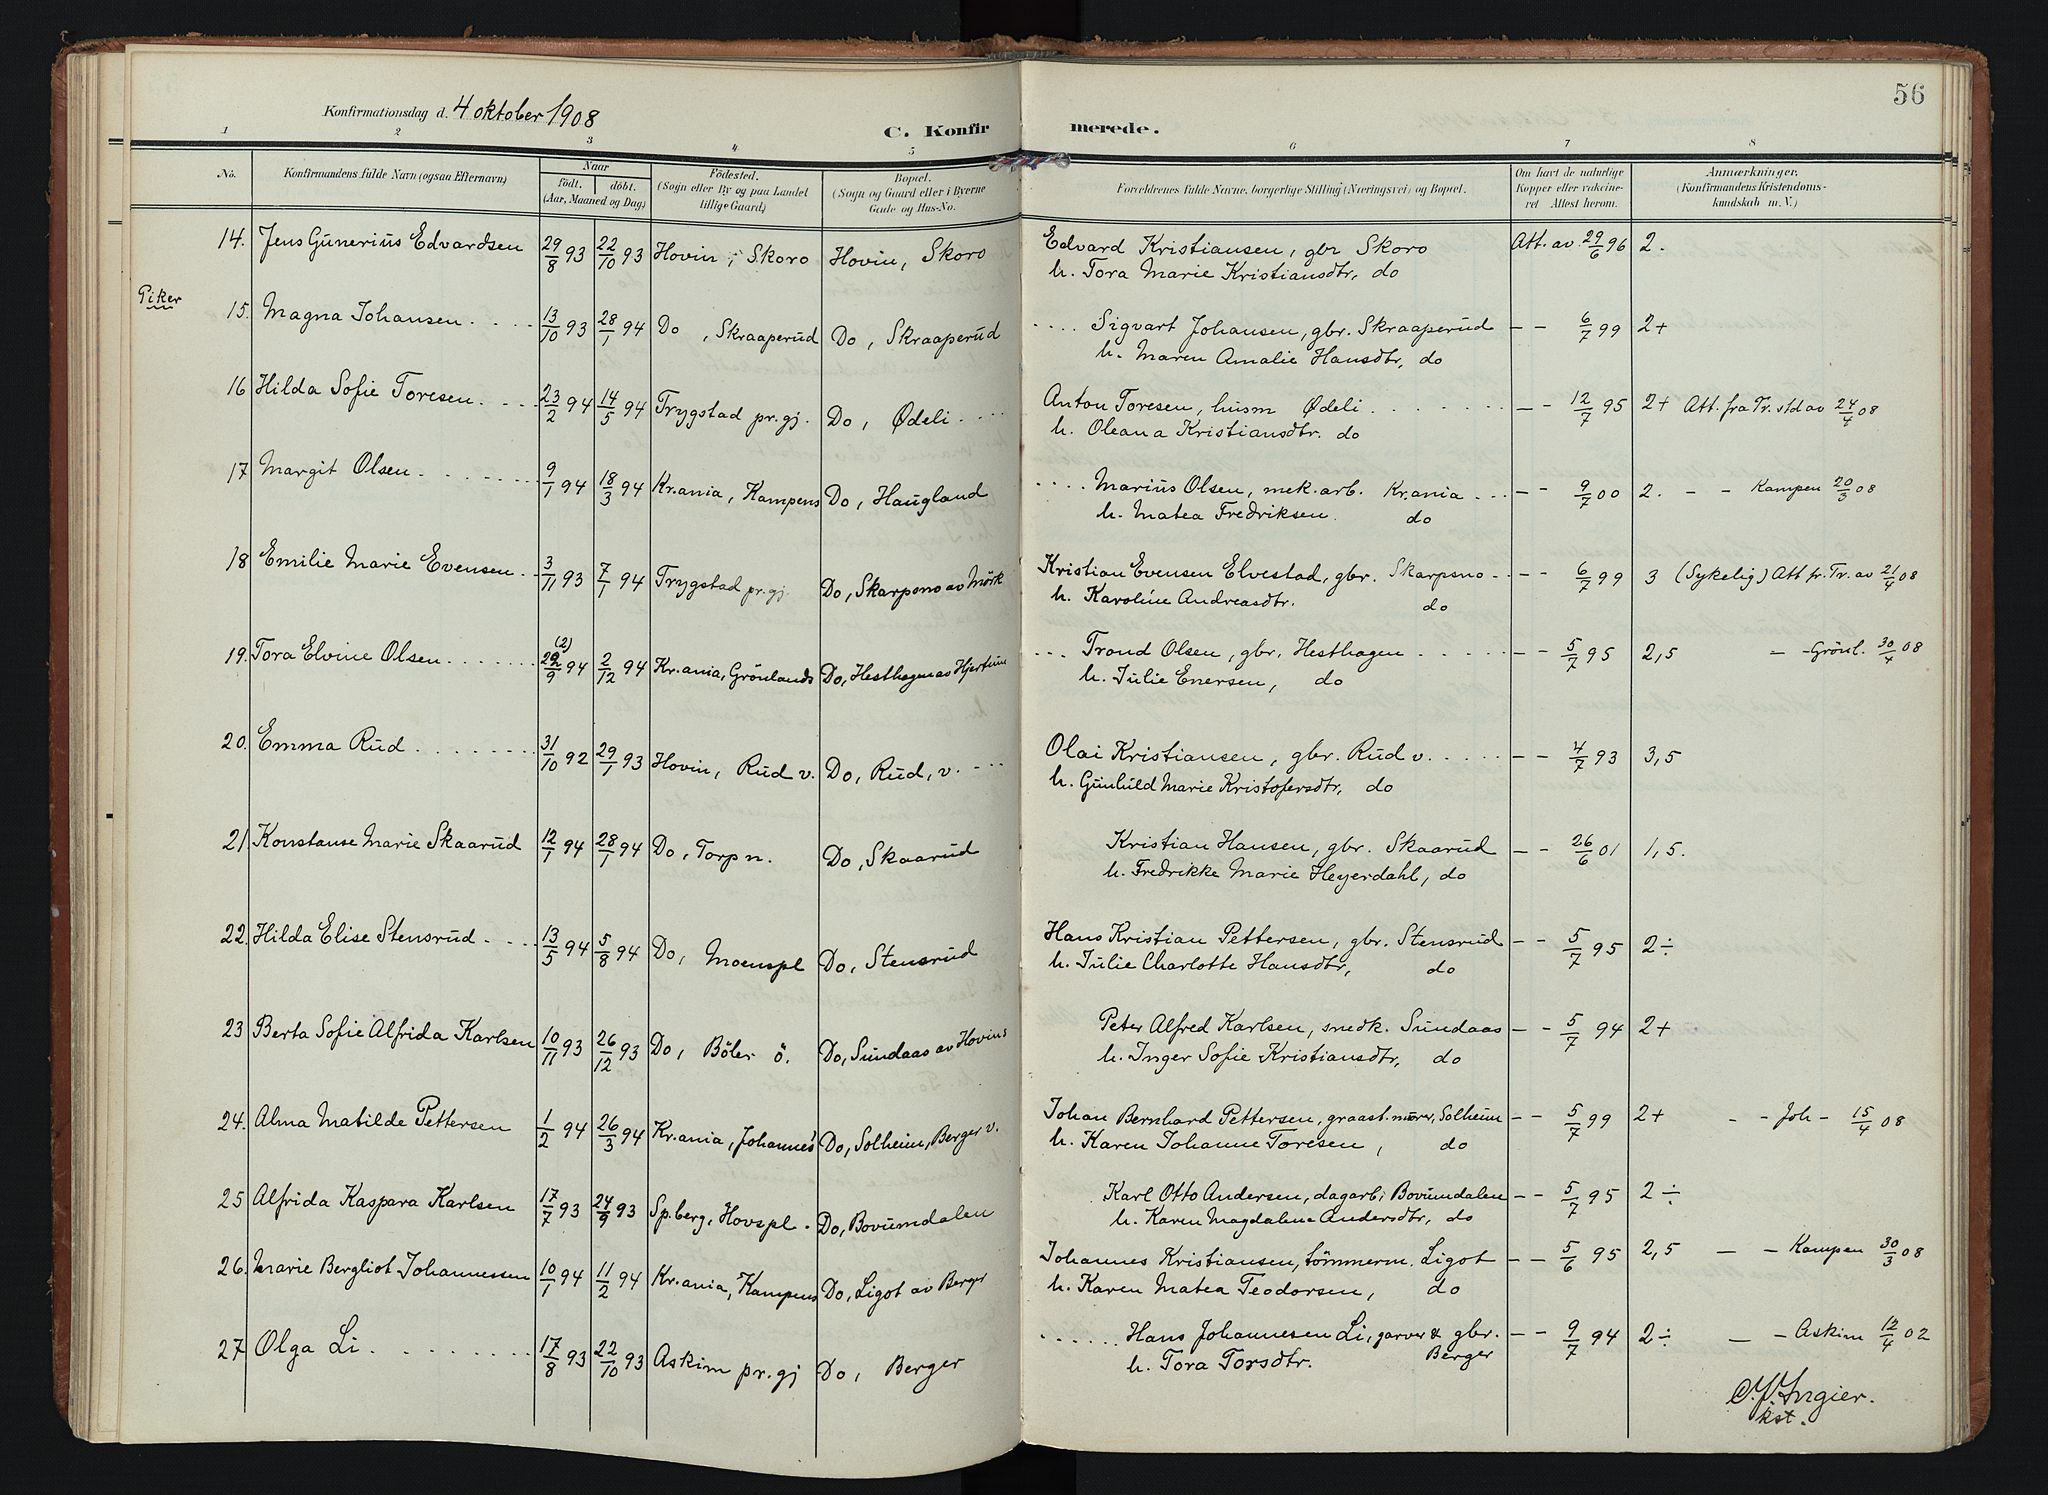 56
Konfirmationsdag d. 4 oktober 1908
C. Konfirmerede.
1 2 3 4 5 6 7 8
No. Konfirmandens fulde Navn (ogsaa Efternavn) Naar födt. döbt. (Aar, Maaned og Dag) Födested. (Sogn eller By og paa Landet tillige Gaard) Bopæl. (Sogn og Gaard eller i Byerne Gade og Hus-No. Forældrenes fulde Navne, borgerlige Stilling (Næringsvei) og Bopæl. Om havt de naturlige Kopper eller vaksineret Attest herom. Anmærkninger. (Konfirmandens Kristendomskundskab m. V.)
14. Jens Gunerius Edvardsen 29/8 93 22/10 93 Hovin, Skoro Hovin, Skoro Edvard Kristiansen, gbr Skoro Att. av 29/6 96 2.
h. Tora Marie Kristiansdtr, do
Piker
15. Magna Johansen 13/10 93 28/1 94 Do, Skraaperud Do, Skraaperud Sigvart Johansen, gbr. Skraaperud – – 6/7 99 2+
h. Maren Amalie Hansdtr, do
16 Hilda Sofie Toresen 23/2 94 14/5 94 Trygstad pr.gj. Do, Ødeli Anton Toresen, husm Ødeli – – 12/7 95 2+ Att. fra Tr. std av 24/4 08
h. Oleana Kristiansdtr. do
17 Margit Olsen 9/1 94 18/3 94 Kr.ania, Kampens Do, Haugland Marius Olsen, mek. arb. Kr.ania – – 9/7 00 2. – – Kampen 20/3 08
h. Matea Fredriksen. do
18 Emilie Marie Evensen 3/11 93 7/1 94 Trygstad pr.gj. Do, Skarpsno av Mörk Kristian Evensen Elvestad, gbr. Skarpsno – – 6/7 99 3 (Sykelig) Att fr. Tr. av 21/4 08
h. Karoline Andreasdtr. do
19. Tora Elvine Olsen (2) 22/9 94 2/12 94 Kr.ania, Grönlands Do, Hesthagen av Hjertum Trond Olsen, gbr. Hesthagen – – 5/7 95 2,5 – – Grönl. 30/4 08
h. Julie Enersen, do
20. Emma Rud 31/10 92 29/1 93 Hovin, Rud v. Do, Rud, v. Olai Kristiansen, gbr. Rud v. – – 4/7 93 3,5
h. Gunhild Marie Kristofersdtr, do
21 Konstanse Marie Skaarud 12/1 94 28/1 94 Do, Torp n. Do, Skaarud Kristian Hansen, gbr. Skaarud – – 26/6 01 1,5.
h. Fredrikke Marie Heyerdahl, do
22. Hilda Elise Stensrud 13/5 94 5/8 94 Do, Moenspl Do, Stensrud Hans Kristian Pettersen, gbr. Stensrud – – 5/7 95 2÷
h. Julie Charlotte Hansdtr, do
23 Berta Sofie Alfrida Karlsen 10/11 93 26/12 93 Do, Böler ö. Do, Sundaas av Hovins Peter Alfred Karlsen, snedk. Sundaas – – 5/7 94 2+
h. Inger Sofie Kristiansdtr, do
24. Alma Matilde Pettersen 1/2 94 26/3 94 Kr.ania, Johannes' Do, Solheim, Berger v. Johan Bernhard Pettersen, graast. murer, Solheim – – 5/7 99 2+ – – Joh – 15/4 08
h. Karen Johanne Toresen, do
25 Alfrida Kaspara Karlsen 17/7 93 24/9 93 Sp.berg, Hovspl. Do, Bovumdalen Karl Otto Andersen, dagarb, Bovumdalen – – 5/7 95 2÷
h. Karen Magdalene Andersdtr, do
26. Marie Bergliot Johannessen 10/1 94 11/2 94 Kr.ania, Kampens Do, Ligot av Berger Johannes Kristiansen, tömmerm. Ligot – – 5/6 95 2,5 – – Kampen 30/3 08
h. Karen Matea Teodorsen, do
27 Olga Li 17/8 93 22/10 93 Askim pr.gj Do, Berger Hans Johannesen Li, garver & gbr. Berger – – 9/7 94 2÷ – – Askim 12/4 02
h. Tora Torsdtr.
Ingier.
kst.